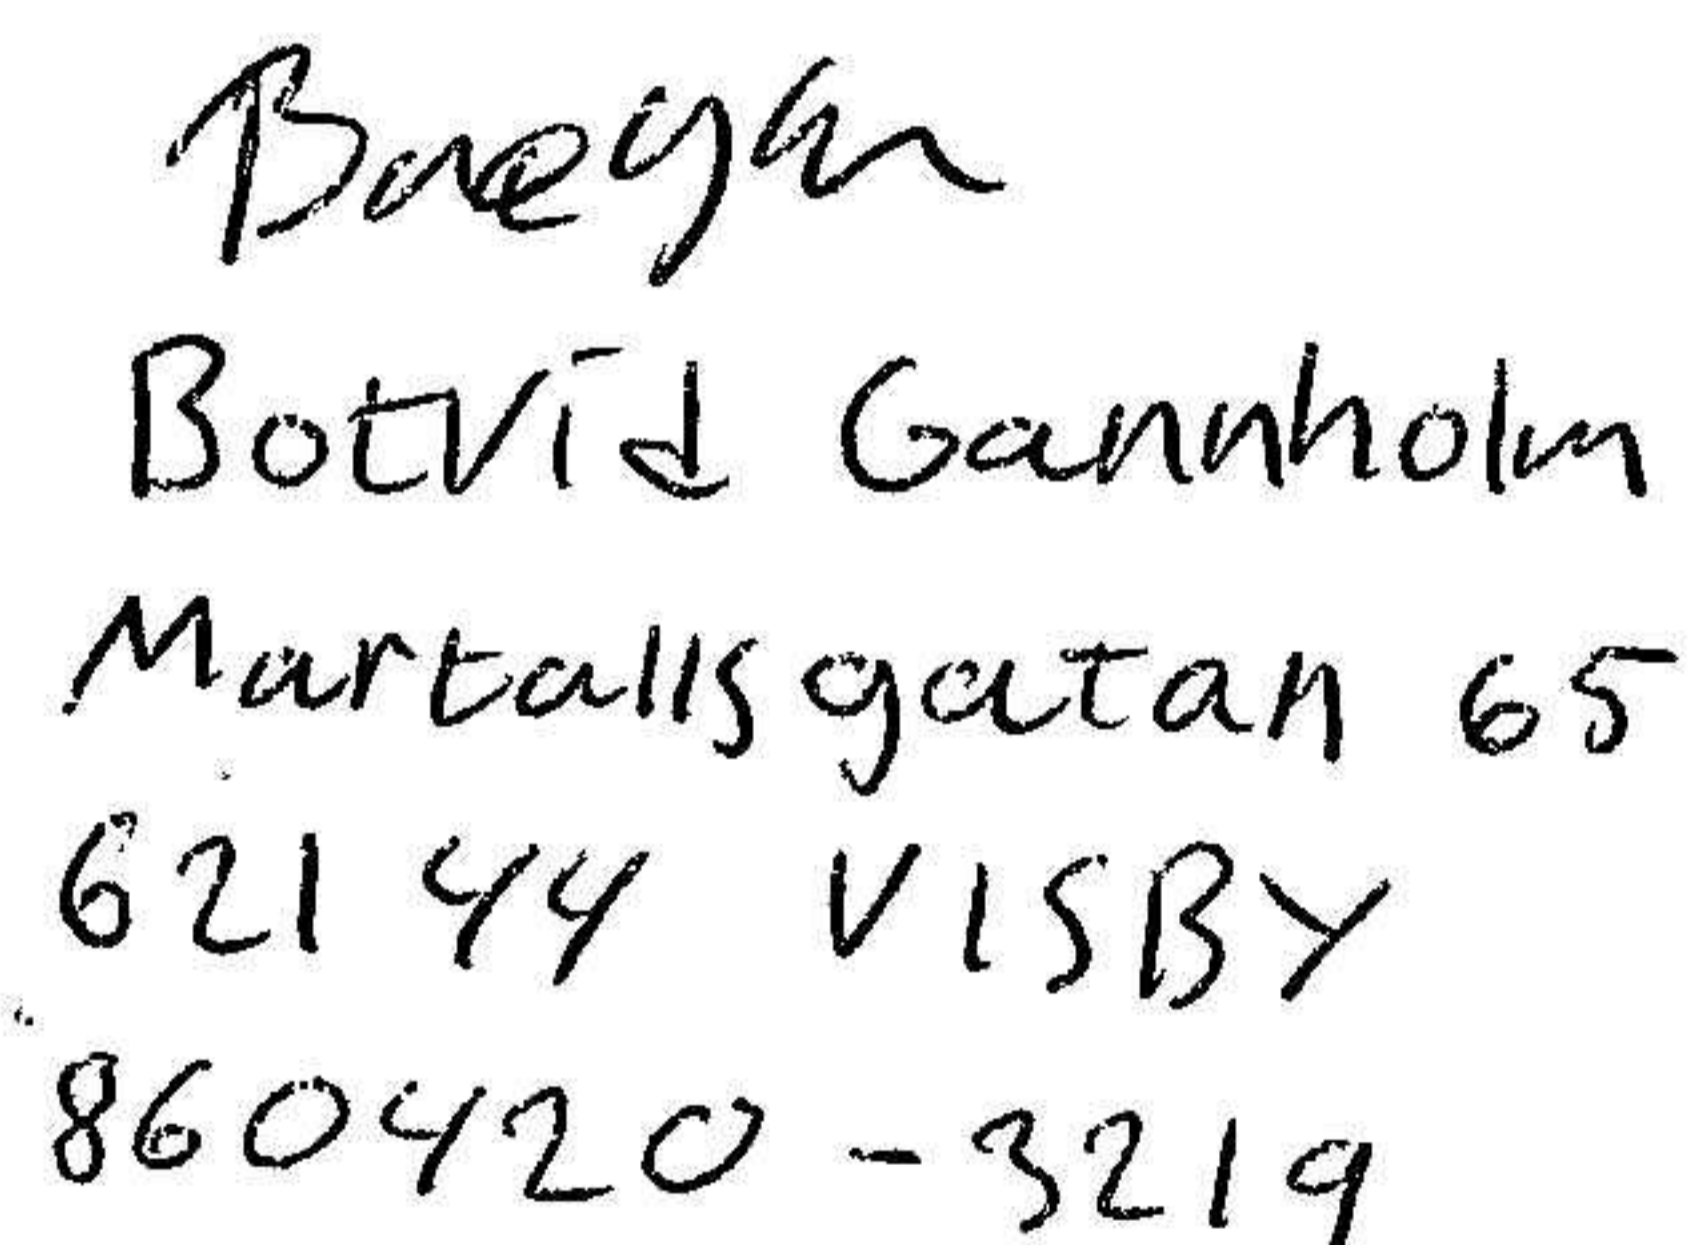 Botvid Gannholm
Martallsgatan 65
621 44 VISBY
860420-3219